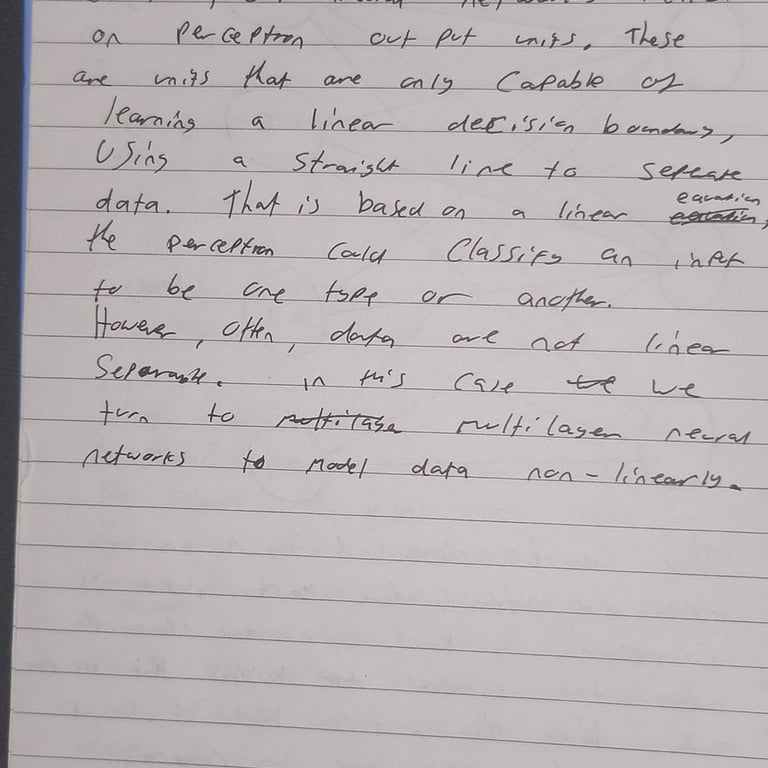 on perceptron out put units. These
are units that are only capable of
learning a linear decision boundary,
Using a straight line to seperate
data. That is based on a linear equation,
the perceptron could classify an input
to be one type or another.
However, often, data are not linear
Separable. in this case we
turn to multilayer neural
networks to model data non-linearly.